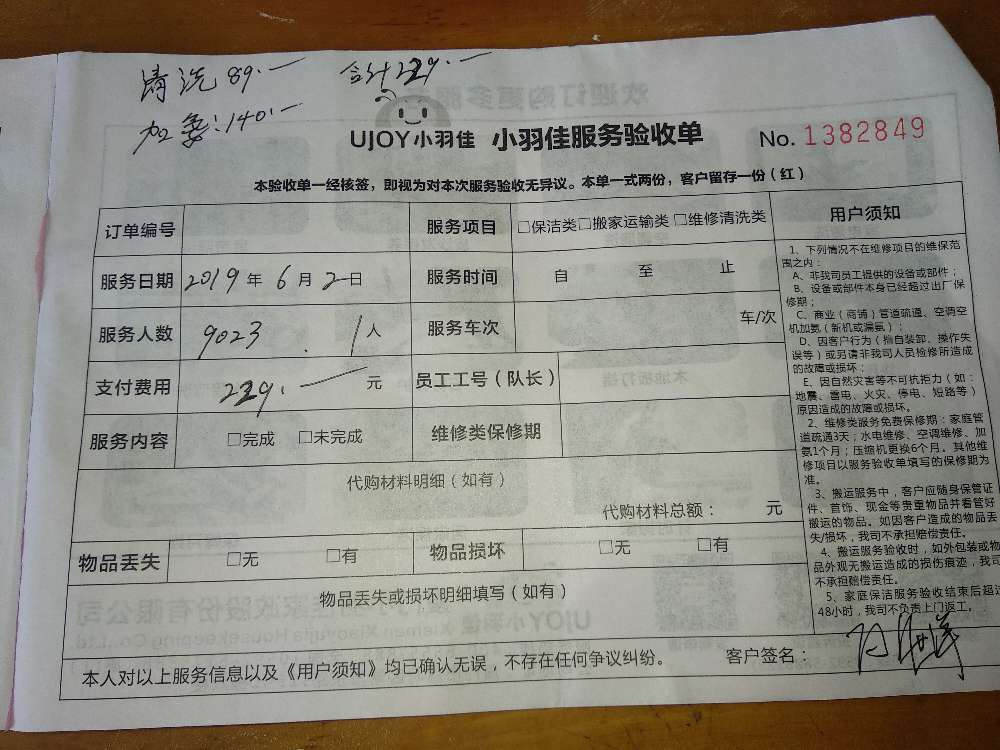 清洗89.一 合计229.一
加氨:140.一
UJOY小羽佳 小羽佳服务验收单 No.1382849
本验收单一经核签，即视为对本次服务验收无异议。本单一式两份，客户留存一份（红）
订单编号 服务项目 □保洁类□搬家运输类□维修清洗类 用户须知
服务日期 2019年6月2日 服务时间 自 至 止
服务人数 9023.1人 服务车次 车/次
支付费用 229.一元 员工工号（队长）
服务内容 □完成 □未完成 维修类保修期
代购材料明细（如有）
代购材料总额： 元
物品丢失 □无 □有 物品损坏 □无 □有
物品丢失或损坏明细填写（如有）
本人对以上服务信息以及《用户须知》均已确认无误，不存在任何争议纠纷。 客户签名：
1、下列情况不在维修项目的维保范
围之内：
A、非我司员工提供的设备或部件；
B、设备或部件本身已经超过出厂保
修期；
C、商业（商铺）管道疏通、空调空
机加氨（新机或漏氨）；
D、因客户行为（指自装卸、操作失
误等）或另请非我司人员检修所造成
的故障或损坏；
E、因自然灾害等不可抗拒力（如：
地震、雷电、火灾、停电、短路等）
原因造成的故障或损坏。
2、维修类服务免费保修期：家庭管
道疏通3天；水电维修、空调维修、加
氨1个月；压缩机更换6个月。其他维
修项目以服务验收单填写的保修期为
准。
3、搬运服务中，客户应随身保管证
件、首饰、现金等贵重物品并看管好
搬运的物品。如因客户造成的物品丢
失/损坏，我司不承担赔偿责任。
4、搬运服务验收时，如外包装或物
品外观无搬运造成的损伤痕迹，我司
不承担赔偿责任。
5、家庭保洁服务验收结束后超过
48小时，我司不负责上门返工。